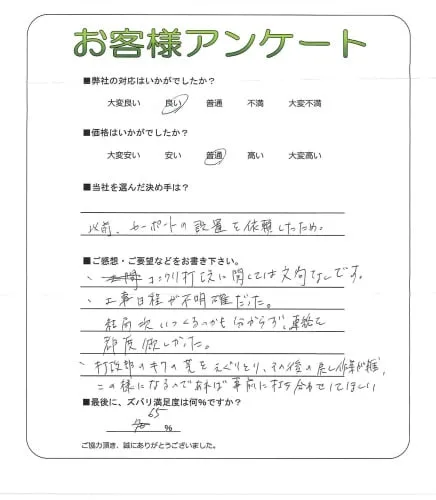 お客様アンケート
■弊社の対応はいかがでしたか？
大変良い 良い 普通 不満 大変不満
■価格はいかがでしたか？
大変安い 安い 普通 高い 大変高い
■当社を選んだ決め手は？
以前、カーポートの設置を依頼したため。
■ご感想・ご要望などをお書き下さい。
・コンクリ打設に関しては文句なしです。
・工事日程が不明確だった。
結局次いつくるのかも分からず、連絡を
都度欲しかった。
・打設部のキワの芝をえぐりとり、その後の戻し作業が雑,
この様になるのであれば事前に打ち合わせしてほしい
■最後に、ズバリ満足度は何%ですか？
65
%
ご協力頂き、誠にありがとうございました。